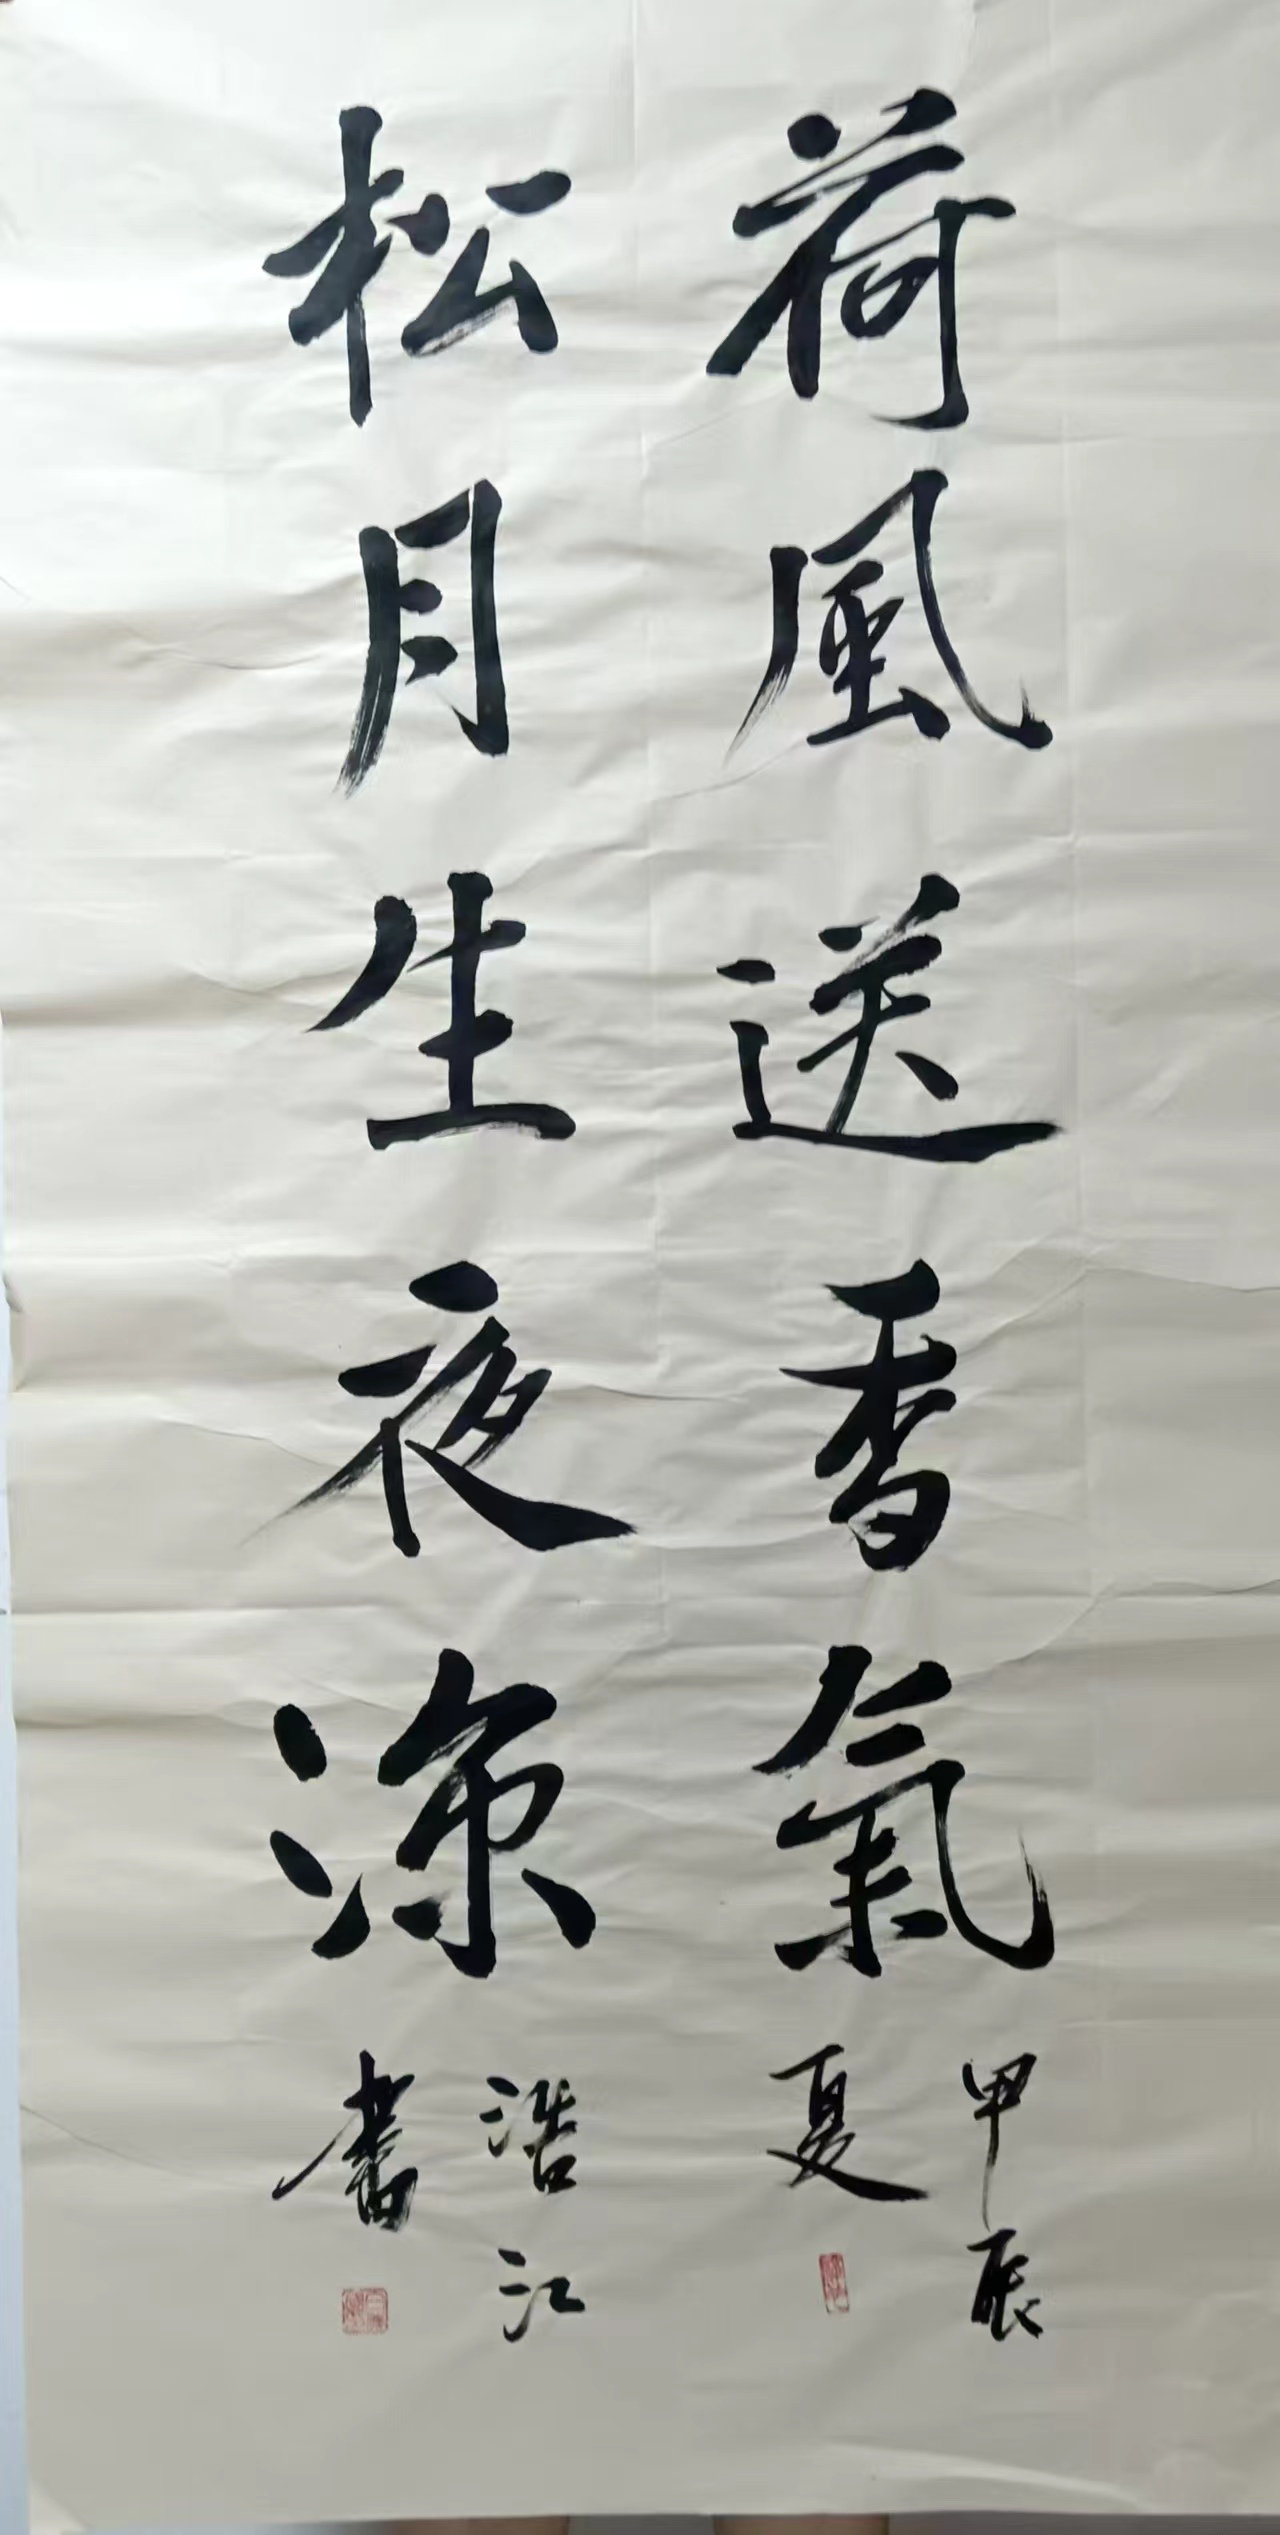 荷風送香氣
松月生夜凉
甲辰
夏
浩江
書